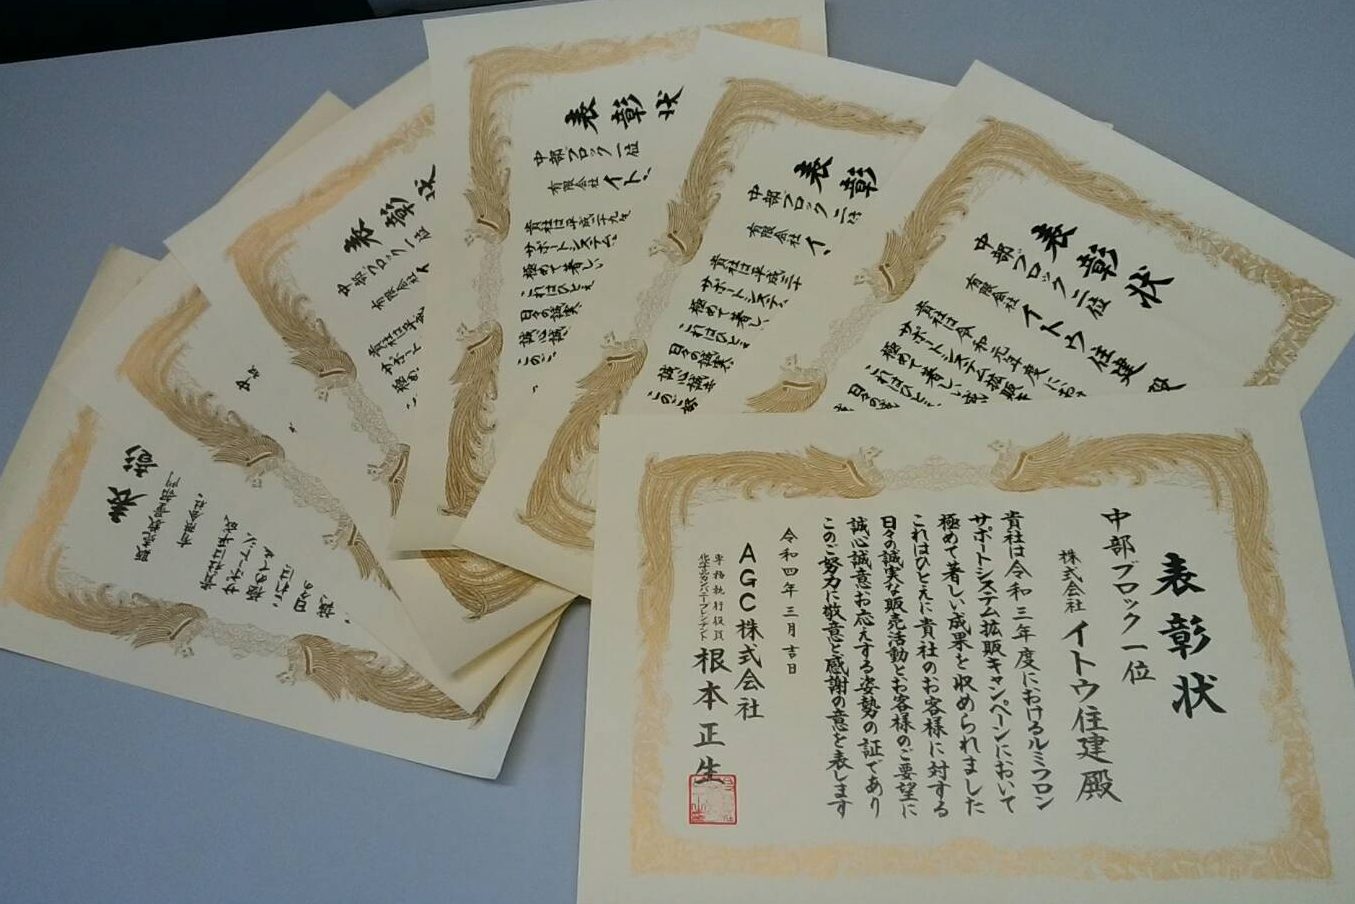 表彰状
中部ブロック一位
株式会社 イトウ住建 殿
貴社は令和三年度におけるルミフロン
サポートシステム拡販キャンペーンにおいて
極めて著しい成果を収められました
これはひとえに貴社のお客様に対する
日々の誠実な販売活動とお客様のご要望に
誠心誠意お応えする姿勢の証であり
このご努力に敬意と感謝の意を表します
令和四年三月吉日
AGC株式会社
専務執行役員
化学品カンパニープレジデント
根本正生
表彰状
中部ブロック二位
有限会社 イトウ住建
貴社は令和元年度にお
サポートシステム拡販
極めて著しい
これはひと
日々の
表彰
中部ブロック二位
有限会社 イ
貴社は平成三十
サポートシステ
極めて著し
これはひと
日々の誠実
誠心誠意
このご努
表彰状
中部ブロック一位
有限会社 イト
貴社は平成二十九年
サポートシステム
極めて著しい
これはひとえ
日々の誠実
誠心誠意
このご
表彰状
中部ブロック一位
有限会社
貴社は平成
表彰
有限会社
貴社は平成
極めて
これは
日々の
誠